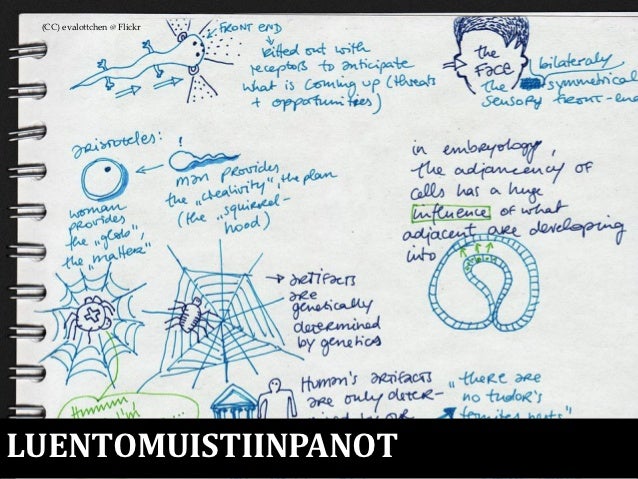 (CC) evalottchen @ Flickr
FRONT END
kitted out with
receptors to anticipate
what is coming up (threats
+ opportunities)
the
FACE
bilateraly
the symmetrical
sensory front-end
aristoteles:
!
woman
provides
the „glob",
the „matter"
man provides
the „creativity", the plan
(the „squirrel-
hood)
in embryology,
the adjancency of
cells has a huge
influence of what
adjacent are developing
into
→ artifacts
are
genetically
determined
by genetics
Hummm
I'm
Human's artifacts
are only deter-
„there are
no tudor's
LUENTOMUISTIINPANOT